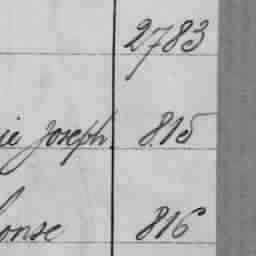 2783
ie Joseph. 815
onse 816